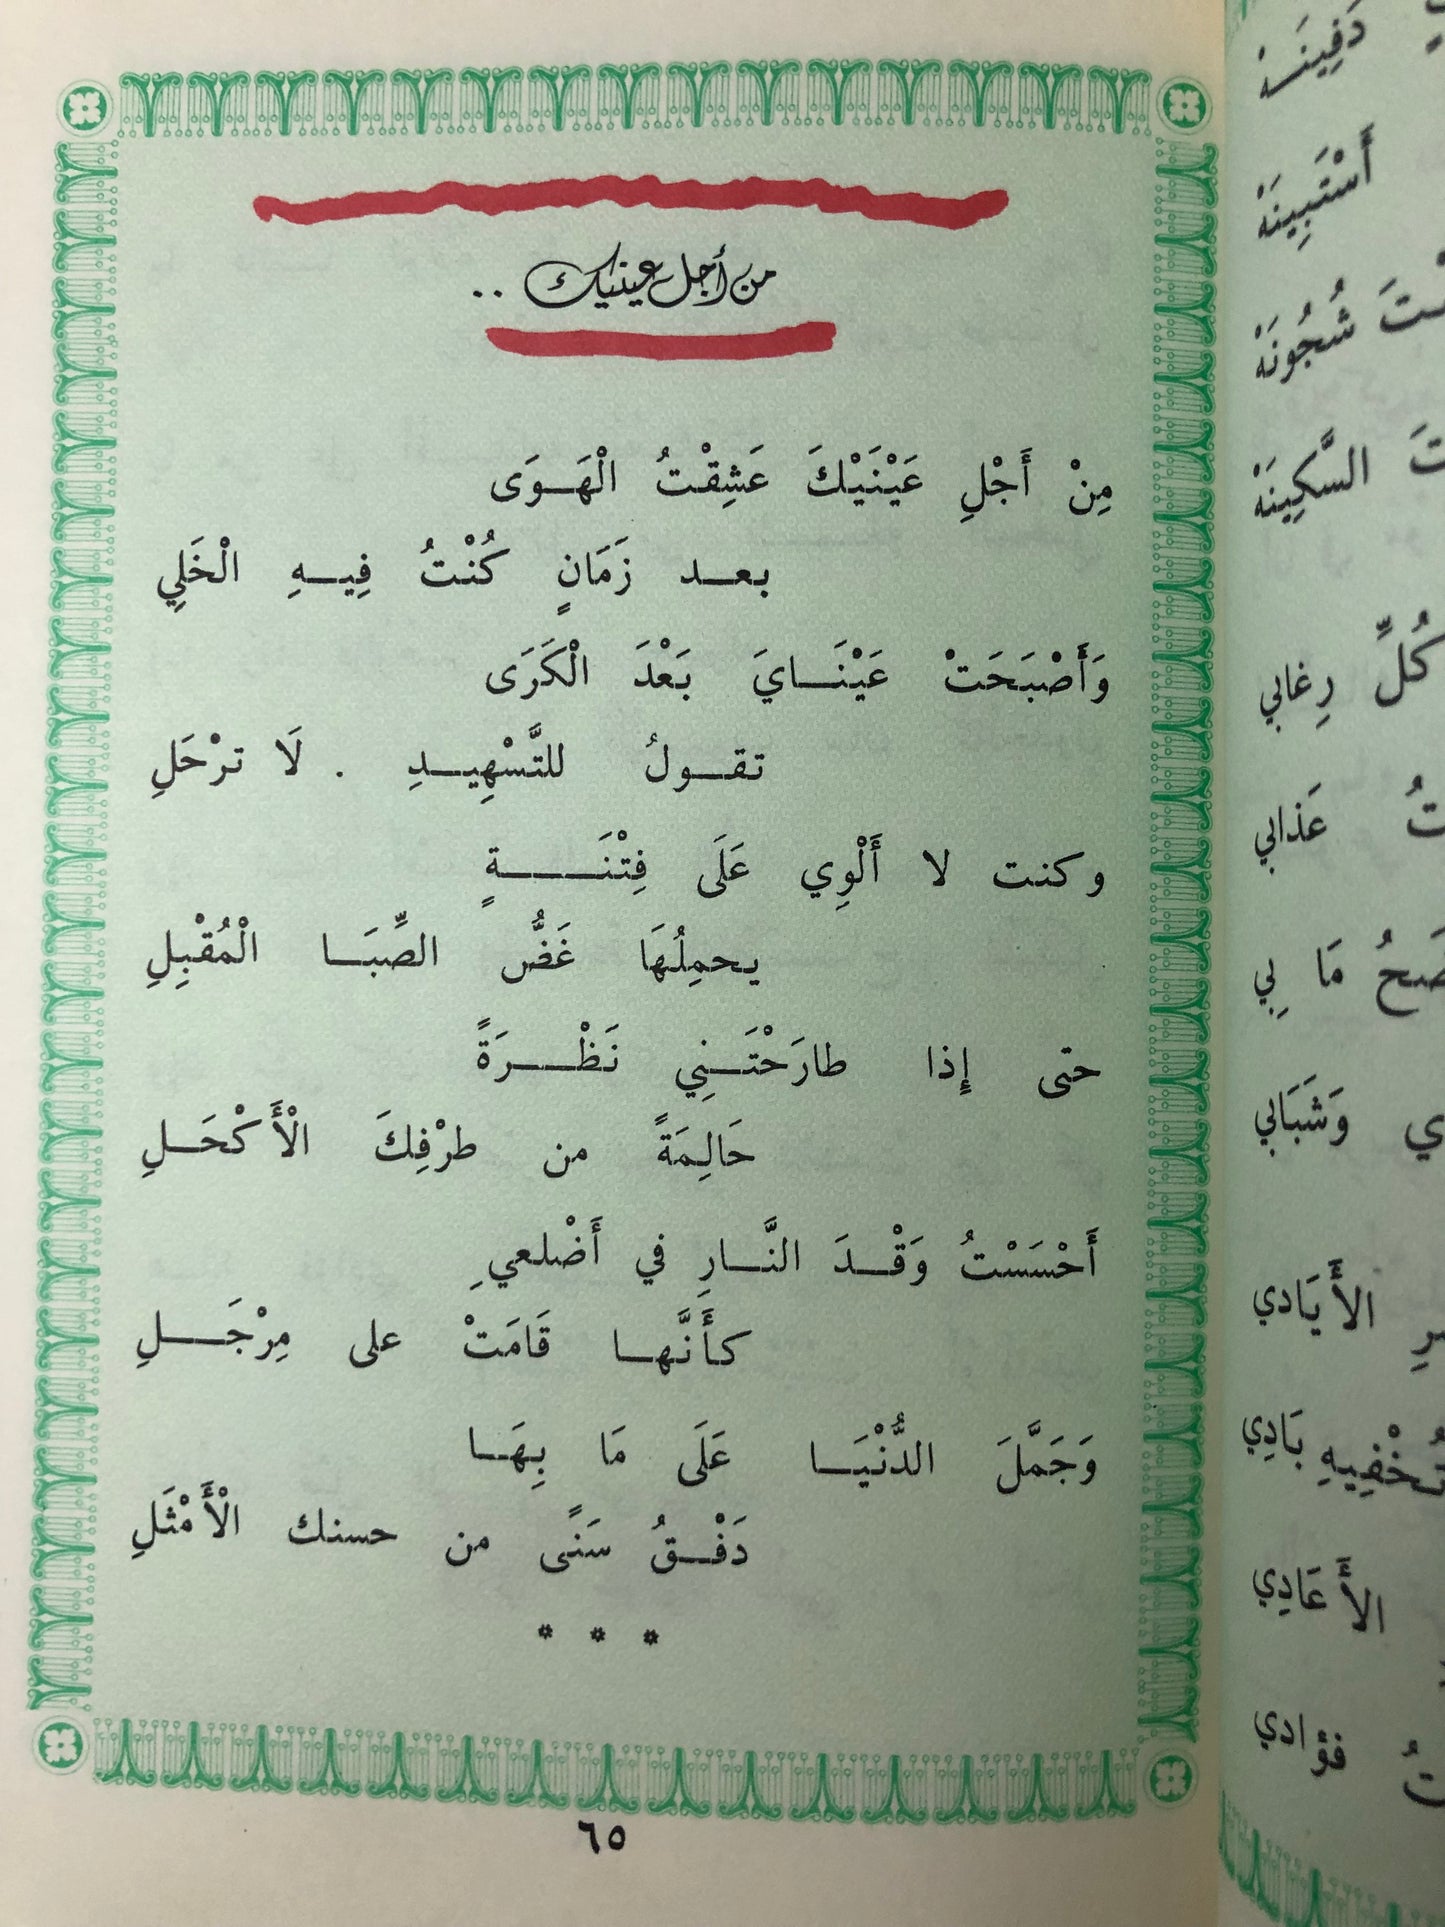 من أجل عينيك ..
مِنْ أَجْلِ عَيْنَيْكَ عَشِقْتُ الْهَوَى
بعد زَمَانٍ كُنْتُ فِيهِ الْخَلِي
وَأَصْبَحَتْ عَيْنَايَ بَعْدَ الْكَرَى
تقولُ للتَّسْهِيدِ . لَا ترْحَلِ
وكنت لا أَلْوِي عَلَى فِتْنَةٍ
يحمِلُهَا غَضُّ الصِّبَا الْمُقْبِلِ
حتى إِذا طارَحْتَنِي نَظْرَةً
حَالِمَةً من طرْفِكَ الْأَكْحَلِ
أَحْسَسْتُ وَقْدَ النَّارِ في أَضْلعيِ
كأَنَّها قَامَتْ على مِرْجَلِ
وَجَمَّلَ الدُّنْيَا عَلَى مَا بِهَا
دَفْقُ سَنًى من حسنك الْأَمْثَلِ
* * *
٦٥
دَفِينَهْ
أَسْتَبِينَهْ
شُجُونَهْ
السَّكِينَهْ
كُلِّ رِغابي
عَذابي
مَا بِي
وَشَبَابي
الأَيَادي
تُخْفِيهِ بَادِي
الأَعَادِي
فؤادي